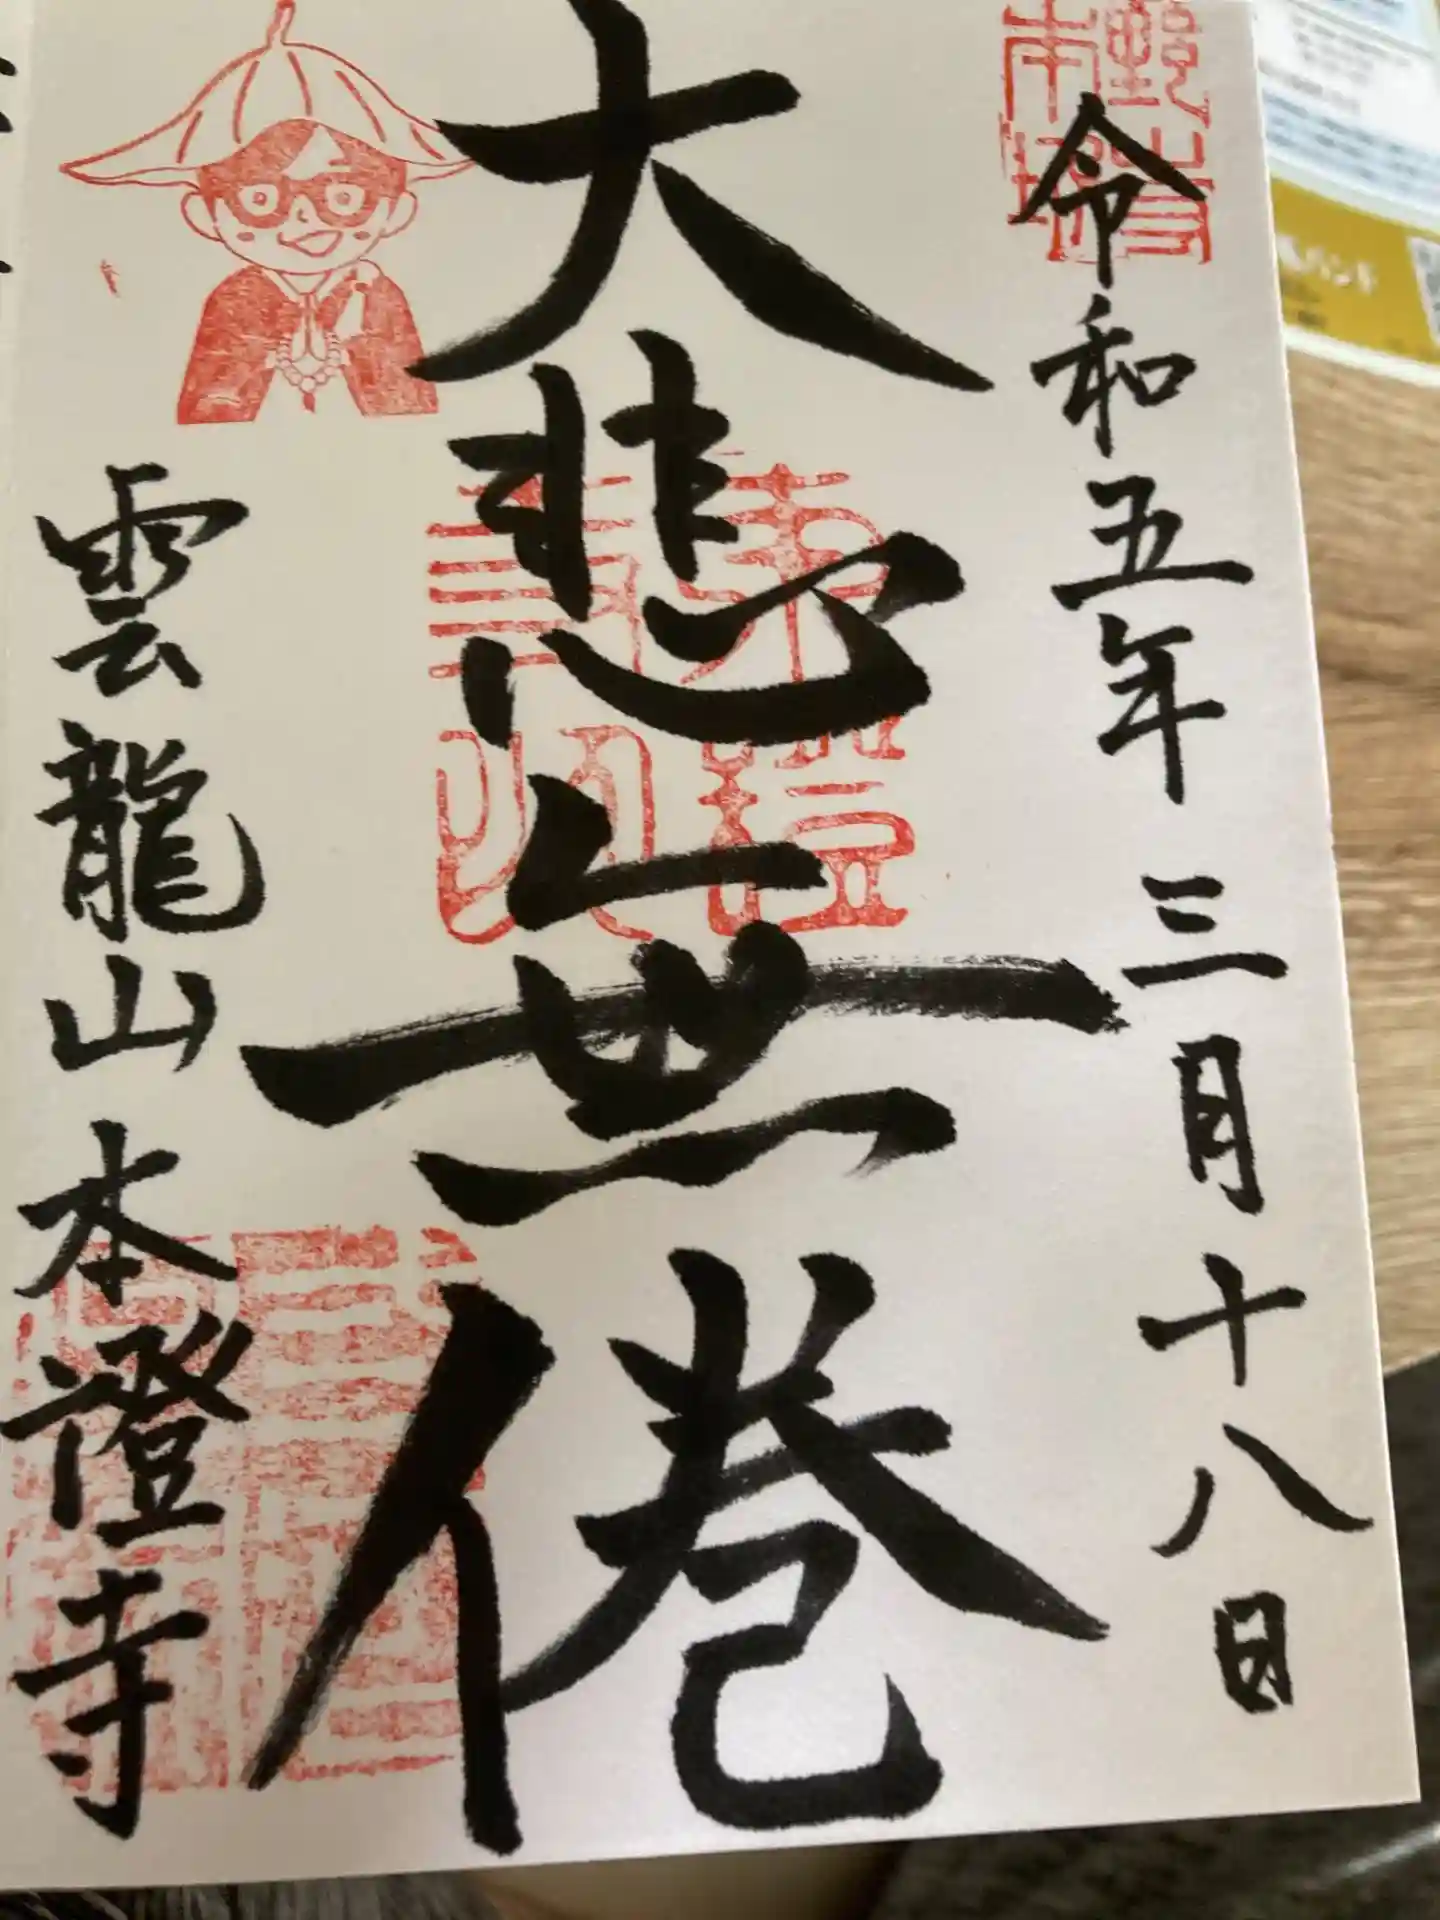 令和五年 三月十八日
大悲無倦
雲龍山 本證寺